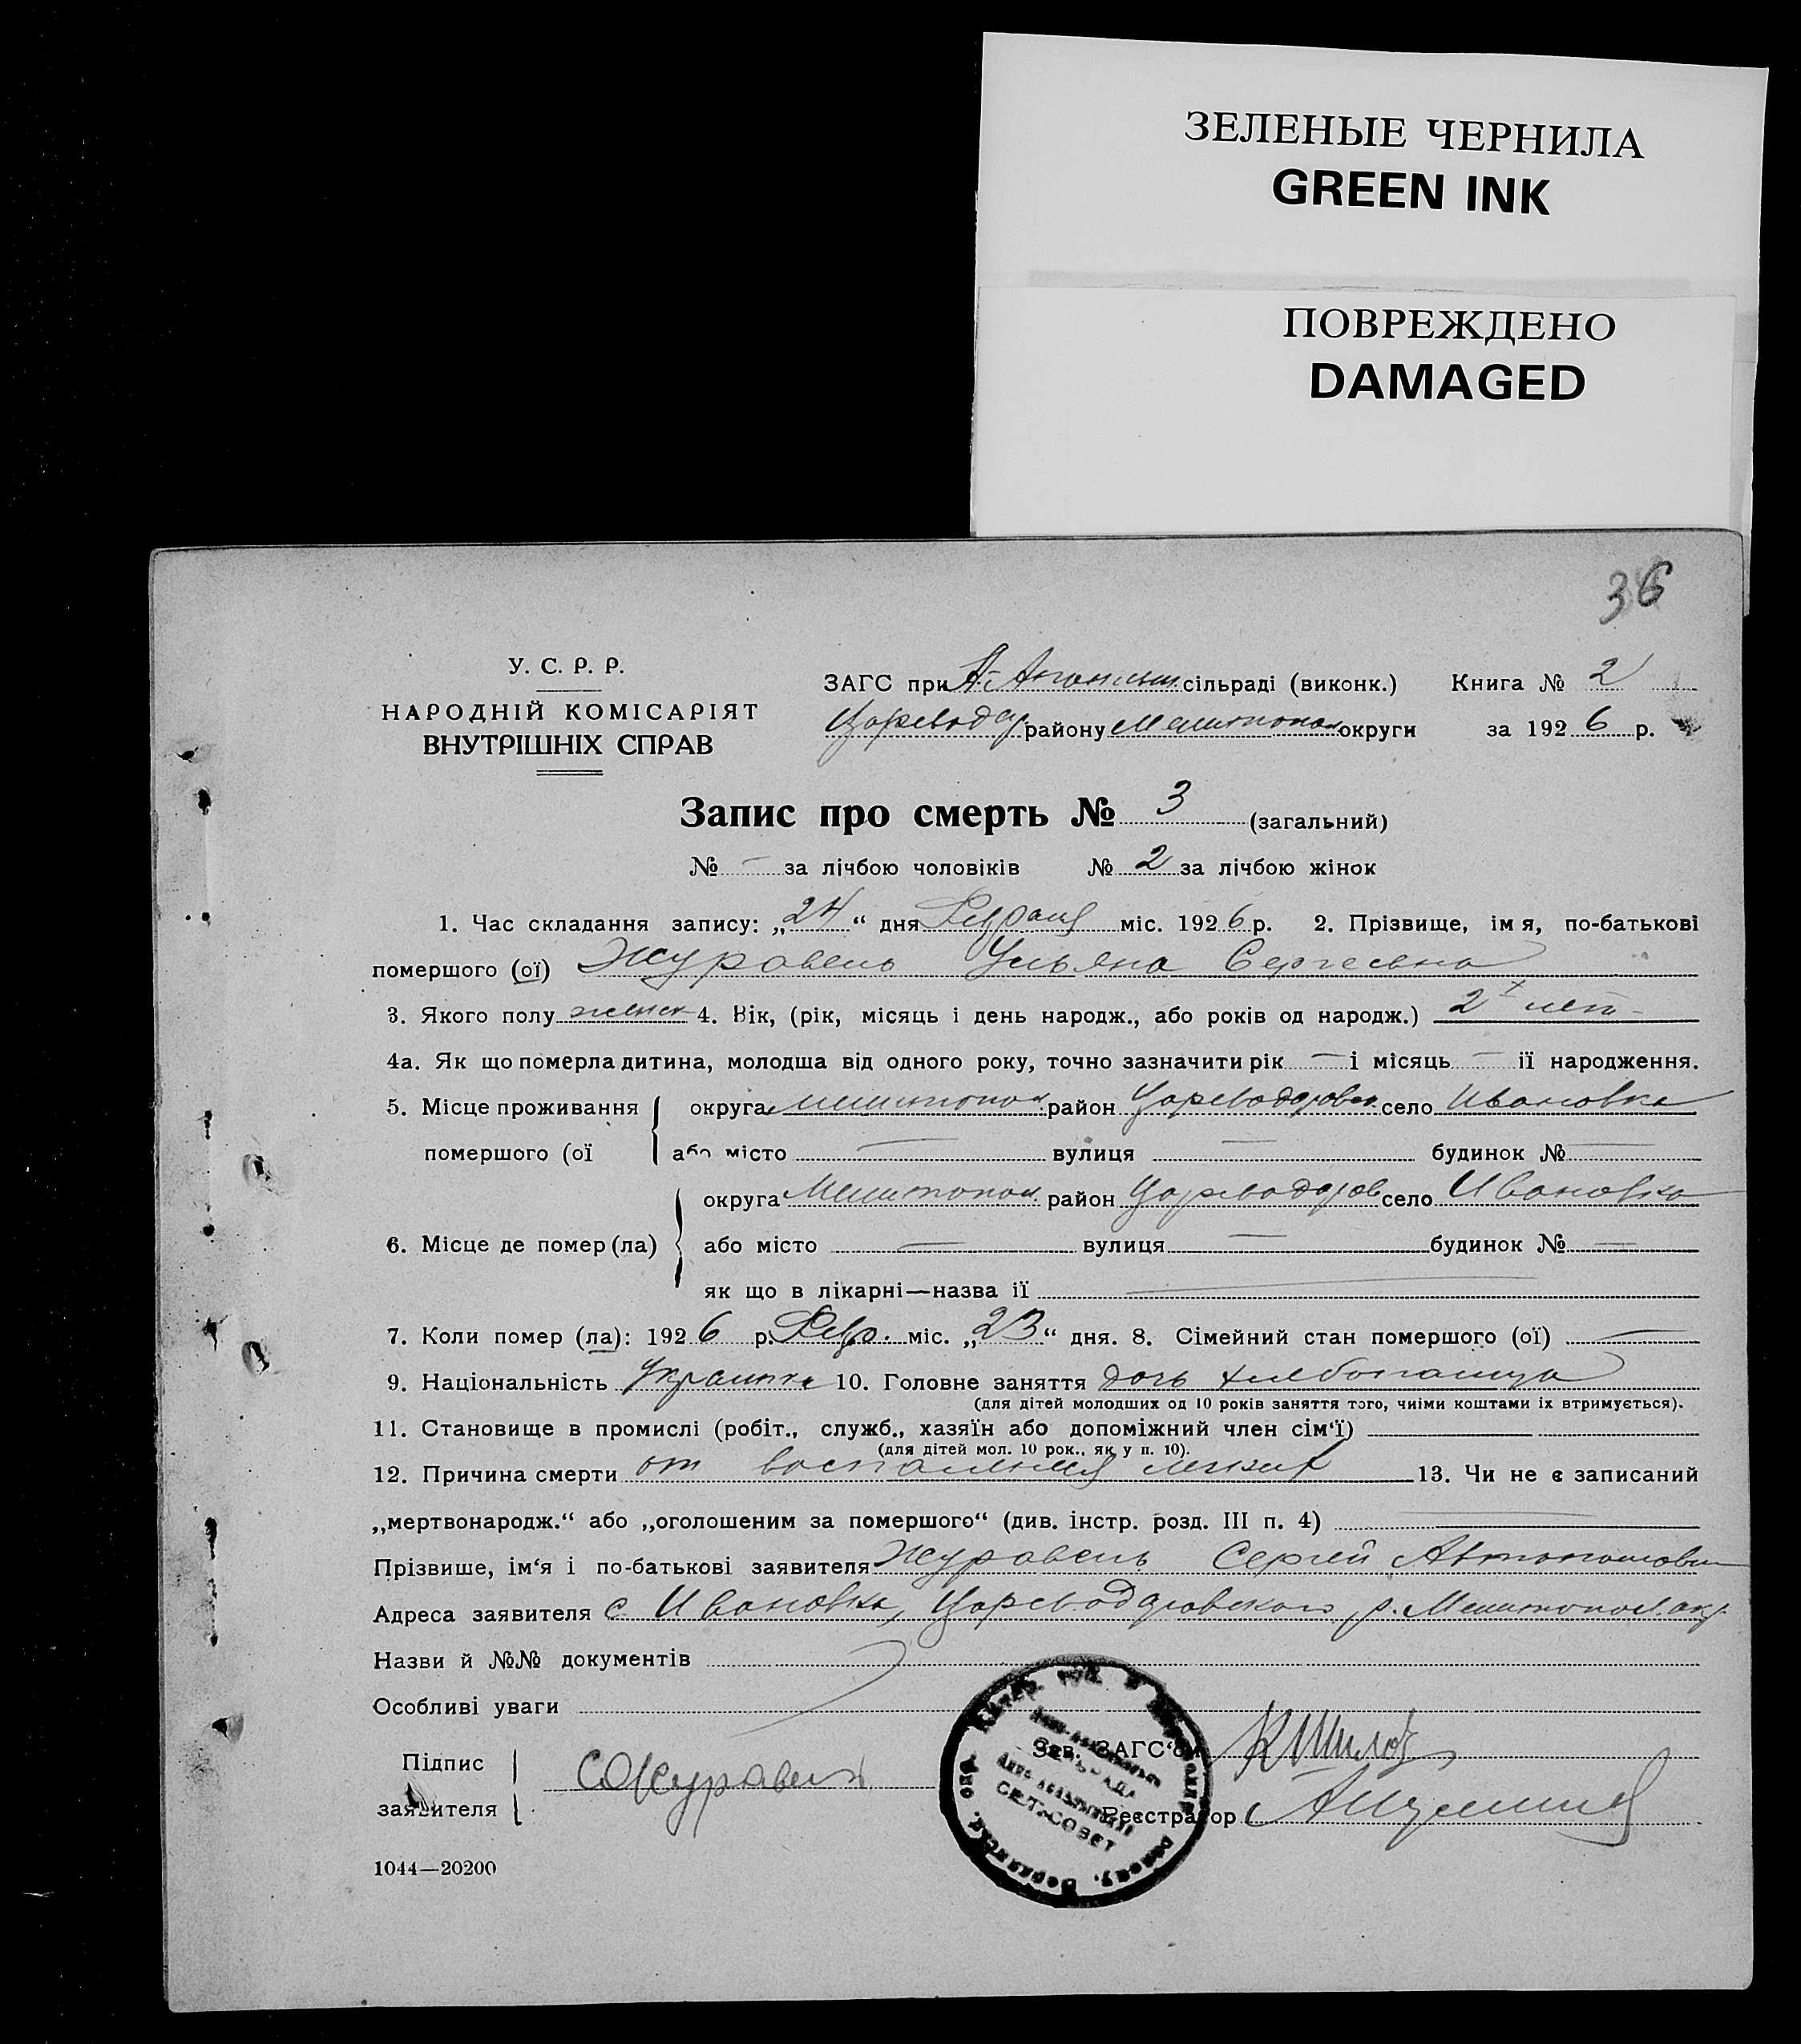 ЗЕЛЕНЫЕ ЧЕРНИЛА
GREEN INK
ПОВРЕЖДЕНО
DAMAGED
36
У. С. Р. Р.
НАРОДНІЙ КОМІСАРІЯТ
ВНУТРІШНІХ СПРАВ
ЗАГС при сільраді (виконк.) Книга № 2
Царевод району Мелитопол округи за 1926 р.
Запис про смерть № 3 (загальний)
№ — за лічбою чоловіків № 2 за лічбою жінок
1. Час складання запису: „24“ дня Февраля міс. 1926 р. 2. Прізвище, імя, по-батькові
помершого (ої) Журавель Ульяна Сергеевна
3. Якого полу женск 4. Вік, (рік, місяць і день народж., або років од народж.) 2х лет
4а. Як що померла дитина, молодша від одного року, точно зазначити рік — і місяць — її народження.
5. Місце проживання округа Мелитопол район Цареводаровск село Ивановка
помершого (ої або місто — вулиця — будинок № —
округа Мелитопол. район Цареводаров село Ивановка
6. Місце де помер (ла) або місто — вулиця — будинок № —
як що в лікарні—назва її —
7. Коли помер (ла): 1926 р. Февр. міс. „23“ дня. 8. Сімейний стан помершого (ої) —
9. Національність Украинка 10. Головне заняття дочь хлебопашца
(для дітей молодших од 10 років заняття того, чиїми коштами їх втримується).
11. Становище в промислі (робіт., служб., хазяїн або допоміжний член сім‘ї) —
(для дітей мол. 10 рок., як у п. 10).
12. Причина смерти от воспаления легких 13. Чи не є записаний
„мертвонародж.“ або „оголошеним за помершого“ (див. інстр. розд. III п. 4) —
Прізвише, ім‘я і по-батькові заявителя Журавель Сергей Автономович
Адреса заявителя с Ивановка, Цареводаровского р. Мелитопол. окр.
Назви й №№ документів
Особливі уваги
Підпис С Журавель Зав. ЗАГС‘ом
заявителя Реєстратор
СЕЛЬСОВЕТ
1044—20200